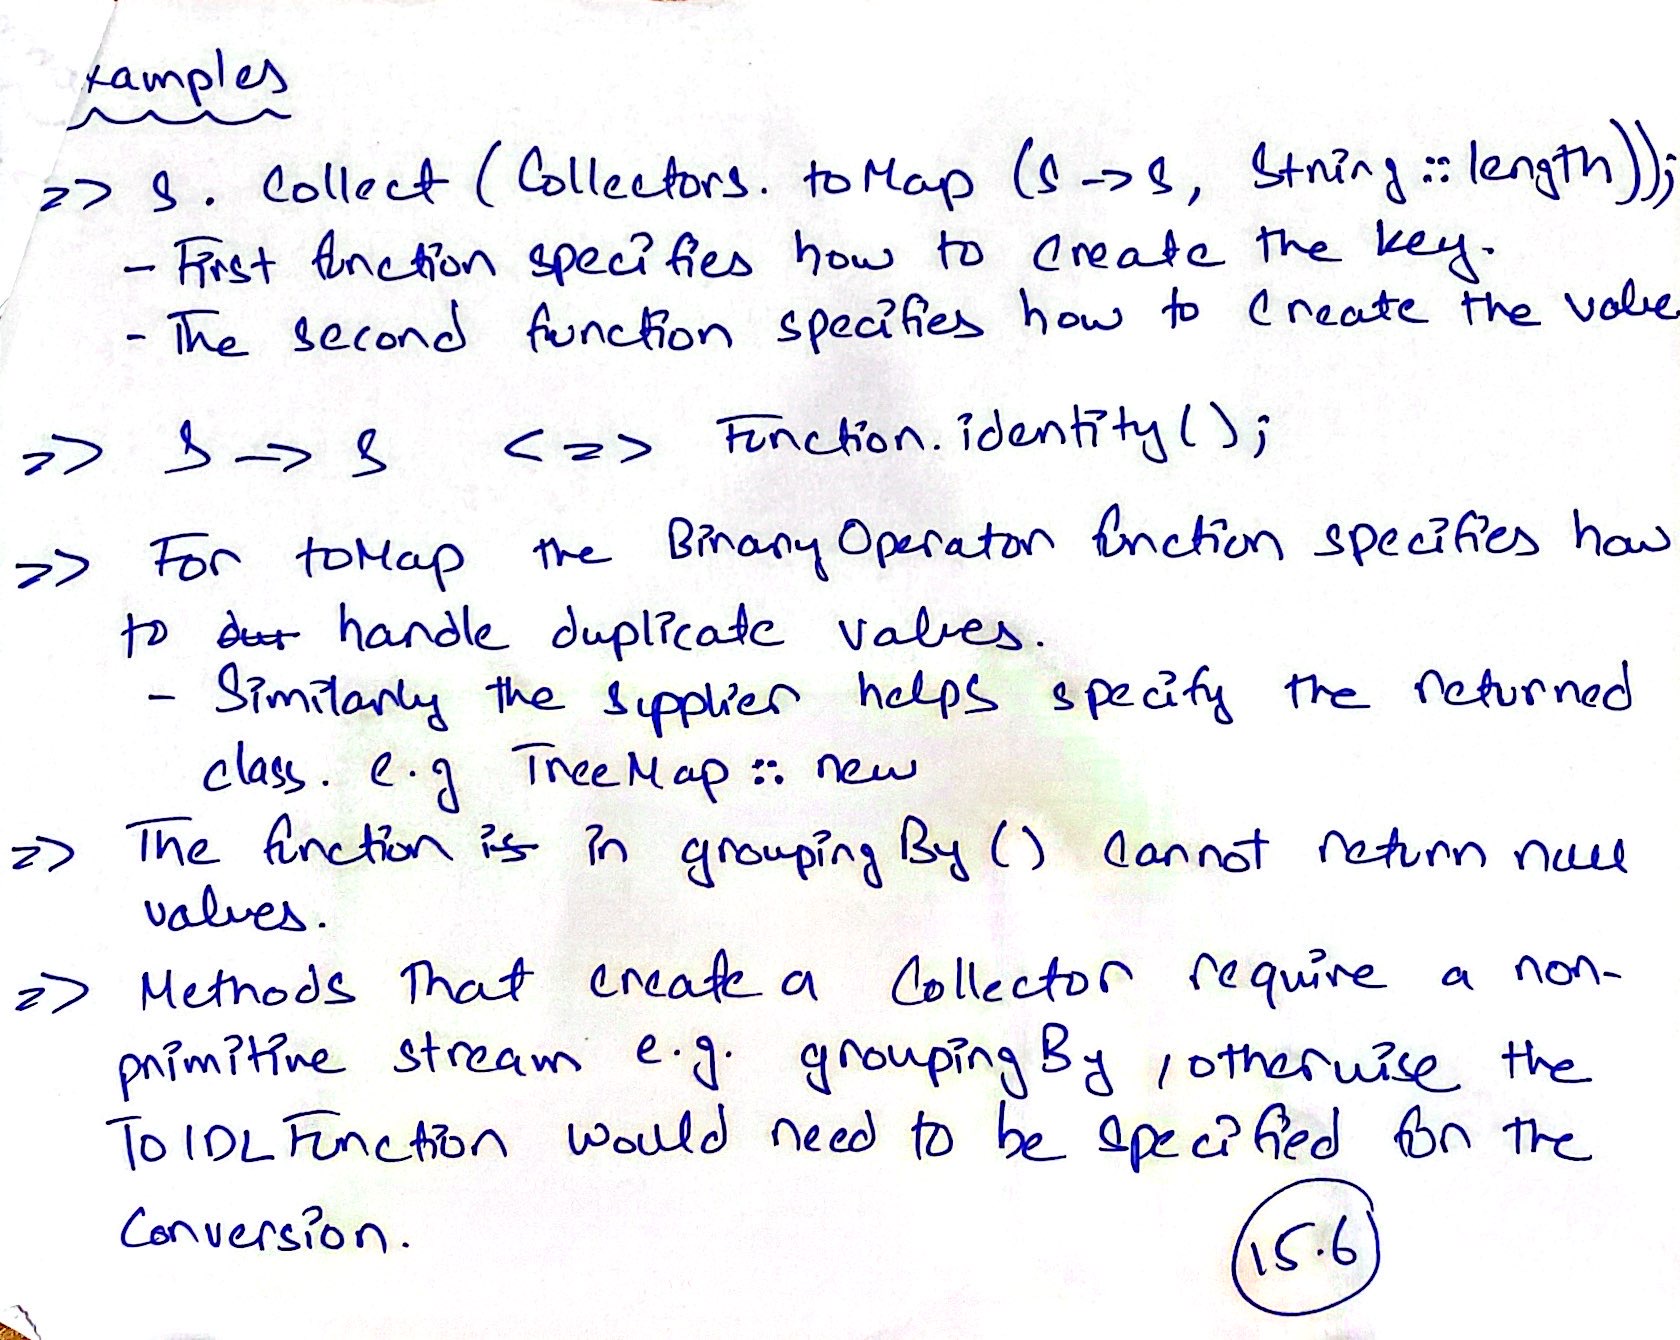 xamples
=> s. Collect (Collectors. toMap (s -> s, String :: length));
- First function specifies how to create the key.
- The second function specifies how to create the value
=> s -> s <=> Function. identity();
=> For toMap the BinaryOperator function specifies how
to dut handle duplicate values.
- Similarly the supplier helps specify the returned
class. e.g TreeMap :: new
=> The function is in groupingBy() cannot return null
values.
=> Methods That create a Collector require a non-
primitive stream e.g. groupingBy, otherwise the
To IDL Function would need to be specified for the
Conversion.
15.6